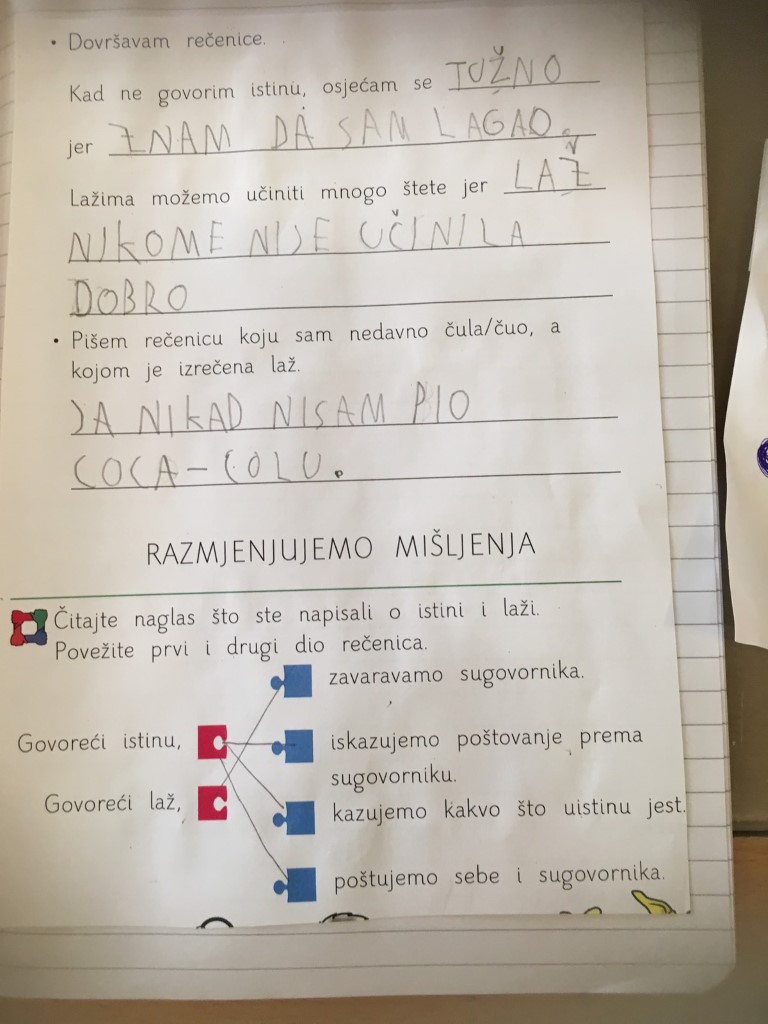 • Dovršavam rečenice.
Kad ne govorim istinu, osjećam se TUŽNO
jer ZNAM DA SAM LAGAO.
Lažima možemo učiniti mnogo štete jer LAŽ
NIKOME NIJE UČINILA
DOBRO
• Pišem rečenicu koju sam nedavno čula/čuo, a
kojom je izrečena laž.
JA NIKAD NISAM PIO
COCA-COLU.
RAZMJENJUJEMO MIŠLJENJA
Čitajte naglas što ste napisali o istini i laži.
Povežite prvi i drugi dio rečenica.
zavaravamo sugovornika.
Govoreći istinu,
iskazujemo poštovanje prema
sugovorniku.
Govoreći laž,
kazujemo kakvo što uistinu jest.
poštujemo sebe i sugovornika.